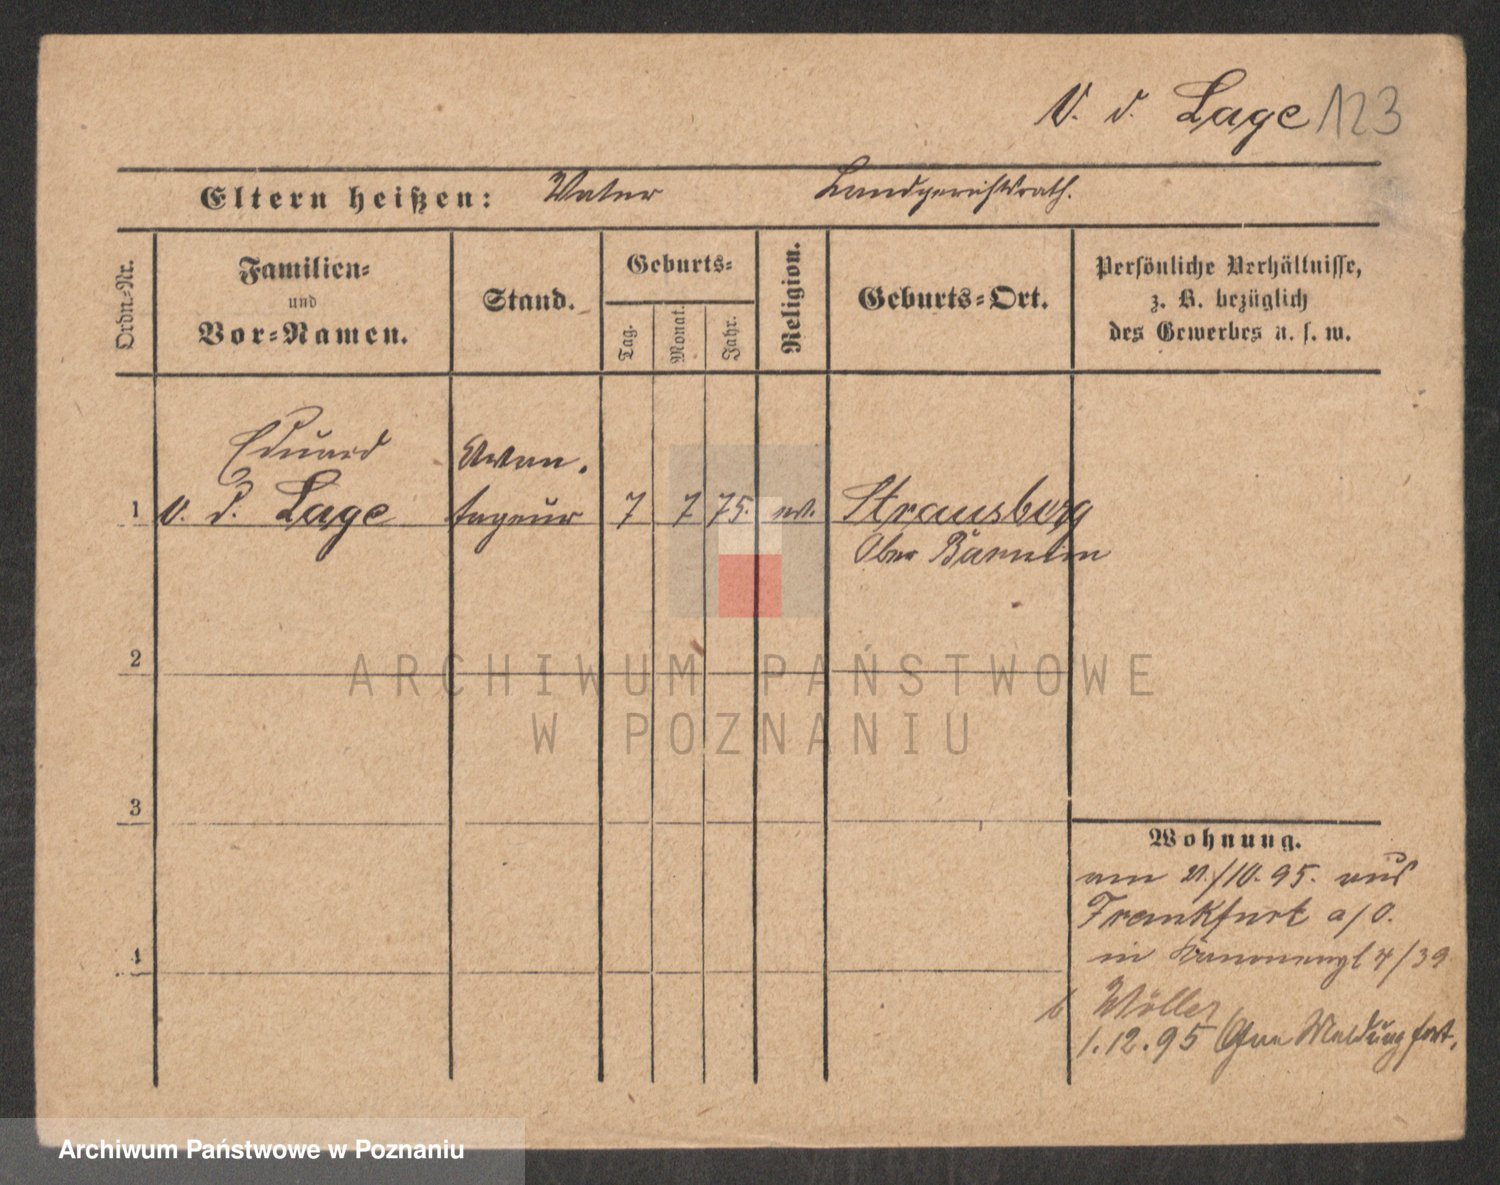 V. d. Lage 123
Eltern heißen: Vater Landgerichtsrath.
Ordn.-Nr.
Familien-
und
Vor-Namen.
Stand.
Geburts-
Tag.
Monat.
Jahr.
Religion.
Geburts-Ort.
Persönliche Verhältnisse,
z. B. bezüglich
des Gewerbes u. s. w.
Eduard
Avan.
1 v. d. Lage tageur 7 7 75. ev. Strausberg
Ober Barnim
2
3
4
Wohnung.
am /10. 95. aus
Frankfurt a/O.
in Kanonenpl 4/39
b Wöller
1.12.95 Ohne Meldung fort.
ARCHIWUM PAŃSTWOWE
W POZNANIU
Archiwum Państwowe w Poznaniu